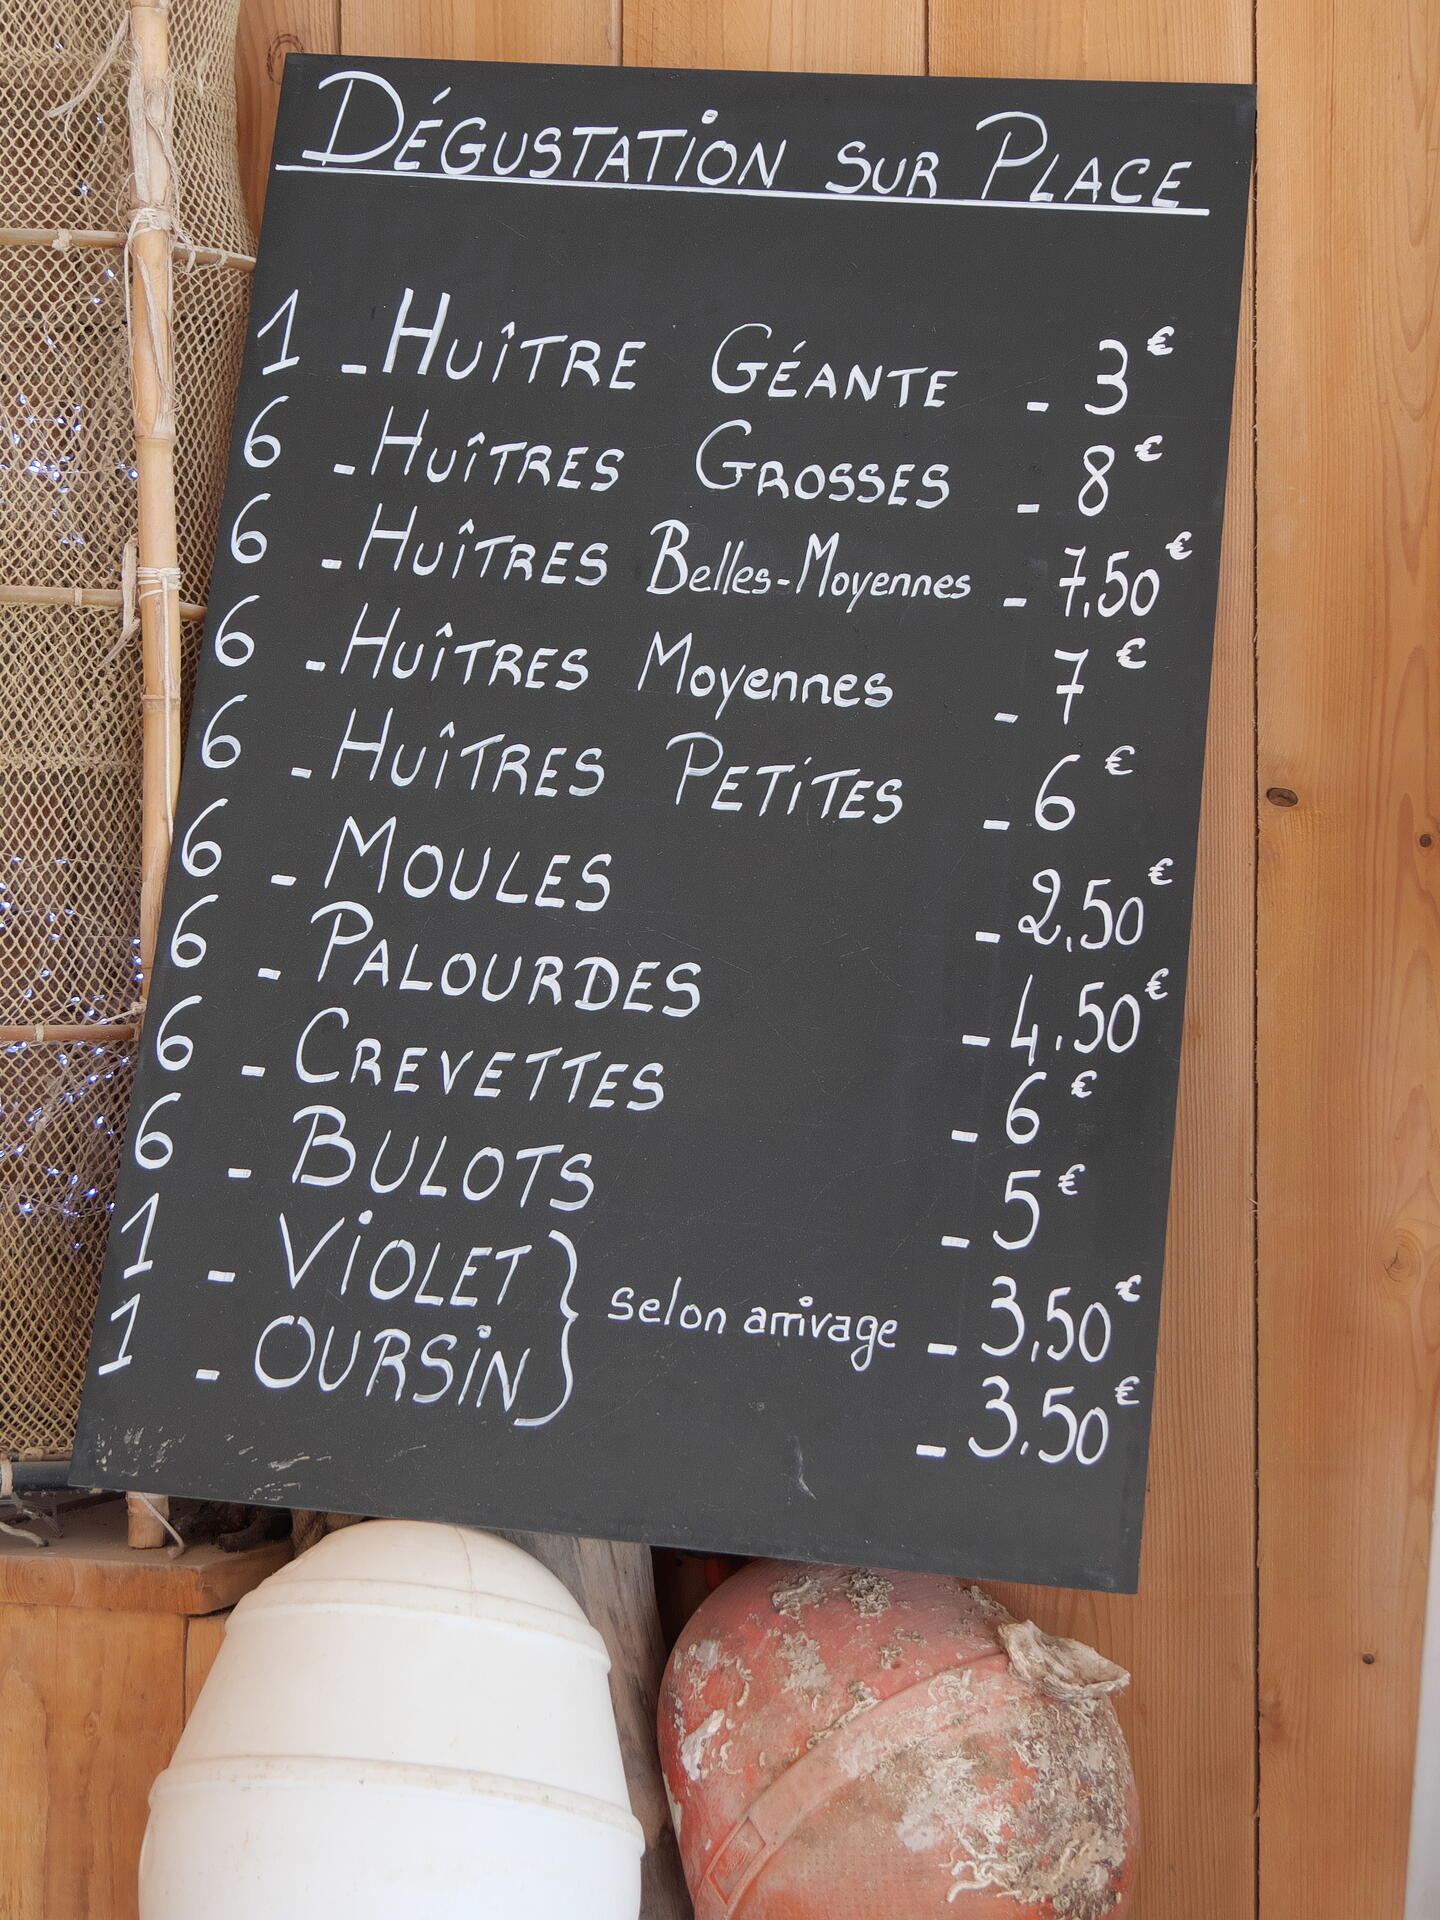 DÉGUSTATION SUR PLACE
1 - HUÎTRE GÉANTE - 3€
6 - HUÎTRES GROSSES - 8€
6 - HUÎTRES Belles-Moyennes - 7,50€
6 - HUÎTRES Moyennes - 7€
6 - HUÎTRES PETITES - 6€
6 - MOULES - 2,50€
6 - PALOURDES - 4,50€
6 - CREVETTES - 6€
6 - BULOTS - 5€
1 - VIOLET } selon arrivage - 3,50€
1 - OURSIN - 3,50€